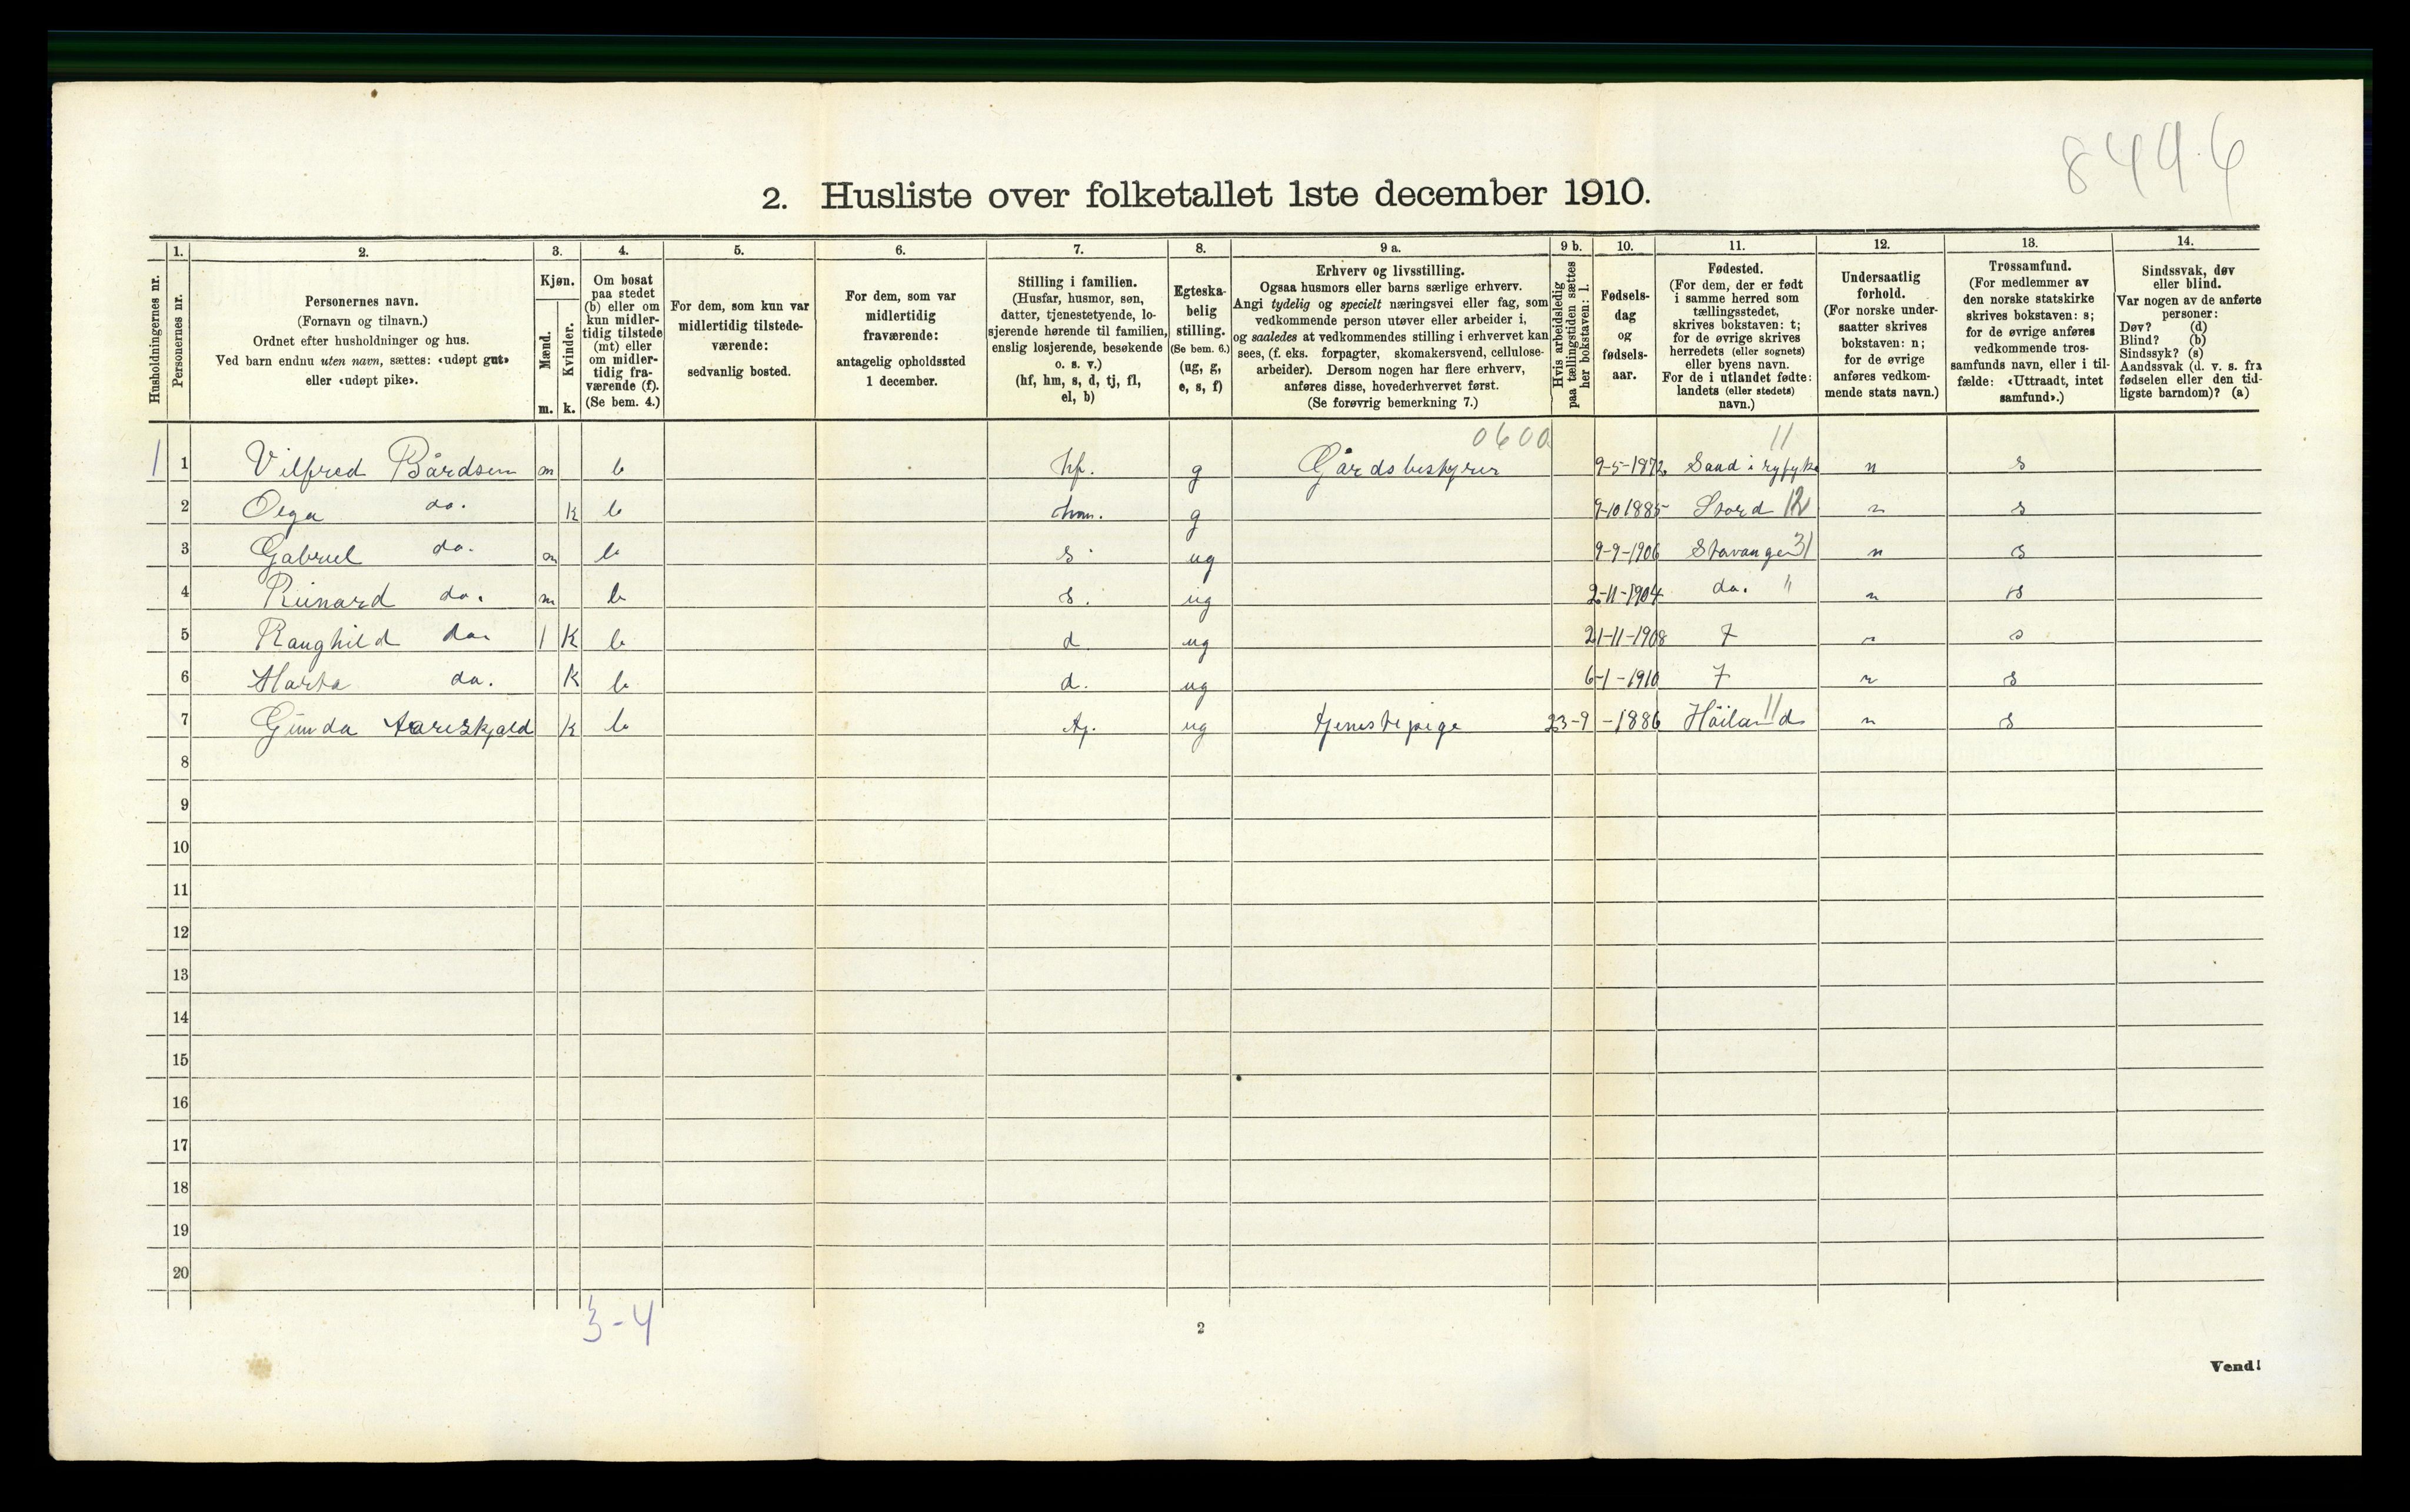 8446
2. Husliste over folketallet 1ste december 1910.
Husholdningernes nr.
1.
Personernes nr.
2.
Personernes navn.
(Fornavn og tilnavn.)
Ordnet efter husholdninger og hus.
Ved barn endnu uten navn, sættes: «udøpt gut»
eller «udøpt pike».
3.
Kjøn.
Mænd.
Kvinder.
m. k.
4.
Om bosat
paa stedet
(b) eller om
kun midler-
tidig tilstede
(mt) eller
om midler-
tidig fra-
værende (f).
(Se bem. 4.)
5.
For dem, som kun var
midlertidig tilstede-
værende:
sedvanlig bosted.
6.
For dem, som var
midlertidig
fraværende:
antagelig opholdssted
1 december.
7.
Stilling i familien.
(Husfar, husmor, søn,
datter, tjenestetyende, lo-
sjerende hørende til familien,
enslig losjerende, besøkende
o. s. v.)
(hf, hm, s, d, tj, fl,
el, b)
8.
Egteska-
belig
stilling.
(Se bem. 6.)
(ug, g,
e, s, f)
9 a.
Erhverv og livsstilling.
Ogsaa husmors eller barns særlige erhverv.
Angi tydelig og specielt næringsvei eller fag, som
vedkommende person utøver eller arbeider i,
og saaledes at vedkommendes stilling i erhvervet kan
sees, (f. eks. forpagter, skomakersvend, cellulose-
arbeider). Dersom nogen har flere erhverv,
anføres disse, hovederhvervet først.
(Se forøvrig bemerkning 7.)
9 b.
Hvis arbeidsledig
paa tællingstiden sættes
her bokstaven: l.
10.
Fødsels-
dag
og
fødsels-
aar.
11.
Fødested.
(For dem, der er født
i samme herred som
tællingsstedet,
skrives bokstaven: t;
for de øvrige skrives
herredets (eller sognets)
eller byens navn.
For de i utlandet fødte:
landets (eller stedets)
navn.)
12.
Undersaatlig
forhold.
(For norske under-
saatter skrives
bokstaven: n;
for de øvrige
anføres vedkom-
mende stats navn.)
13.
Trossamfund.
(For medlemmer av
den norske statskirke
skrives bokstaven: s;
for de øvrige anføres
vedkommende tros-
samfunds navn, eller i til-
fælde: «Uttraadt, intet
samfund».)
14.
Sindssvak, døv
eller blind.
Var nogen av de anførte
personer:
Døv? (d)
Blind? (b)
Sindssyk? (s)
Aandssvak (d. v. s. fra
fødselen eller den tid-
ligste barndom)? (a)
0600 11
1 1 Vilfred Bårdsen m b hf. g Gårdsbestyrer 9-5-1872 Sand i ryfylke n s
2 Olga do. k b hm. g 9-10 1885 Stord 12 n s
3 Gabriel do. m b s ug 9-9-1906 Stavanger 31 n s
4 Reinard do. m b s. ug 2-11-1904 do. " n s
5 Ranghild do. 1 K b d ug 21-11-1908 t n s
6 Marta do. K b d. ug 6-1-1910 t n s
7 Gunda k b tj. ug tjenestepige 23-9-1886 Höiland 11 n s
8
9
10
11
12
13
14
15
16
17
18
19
20
3-4
2
Vend!